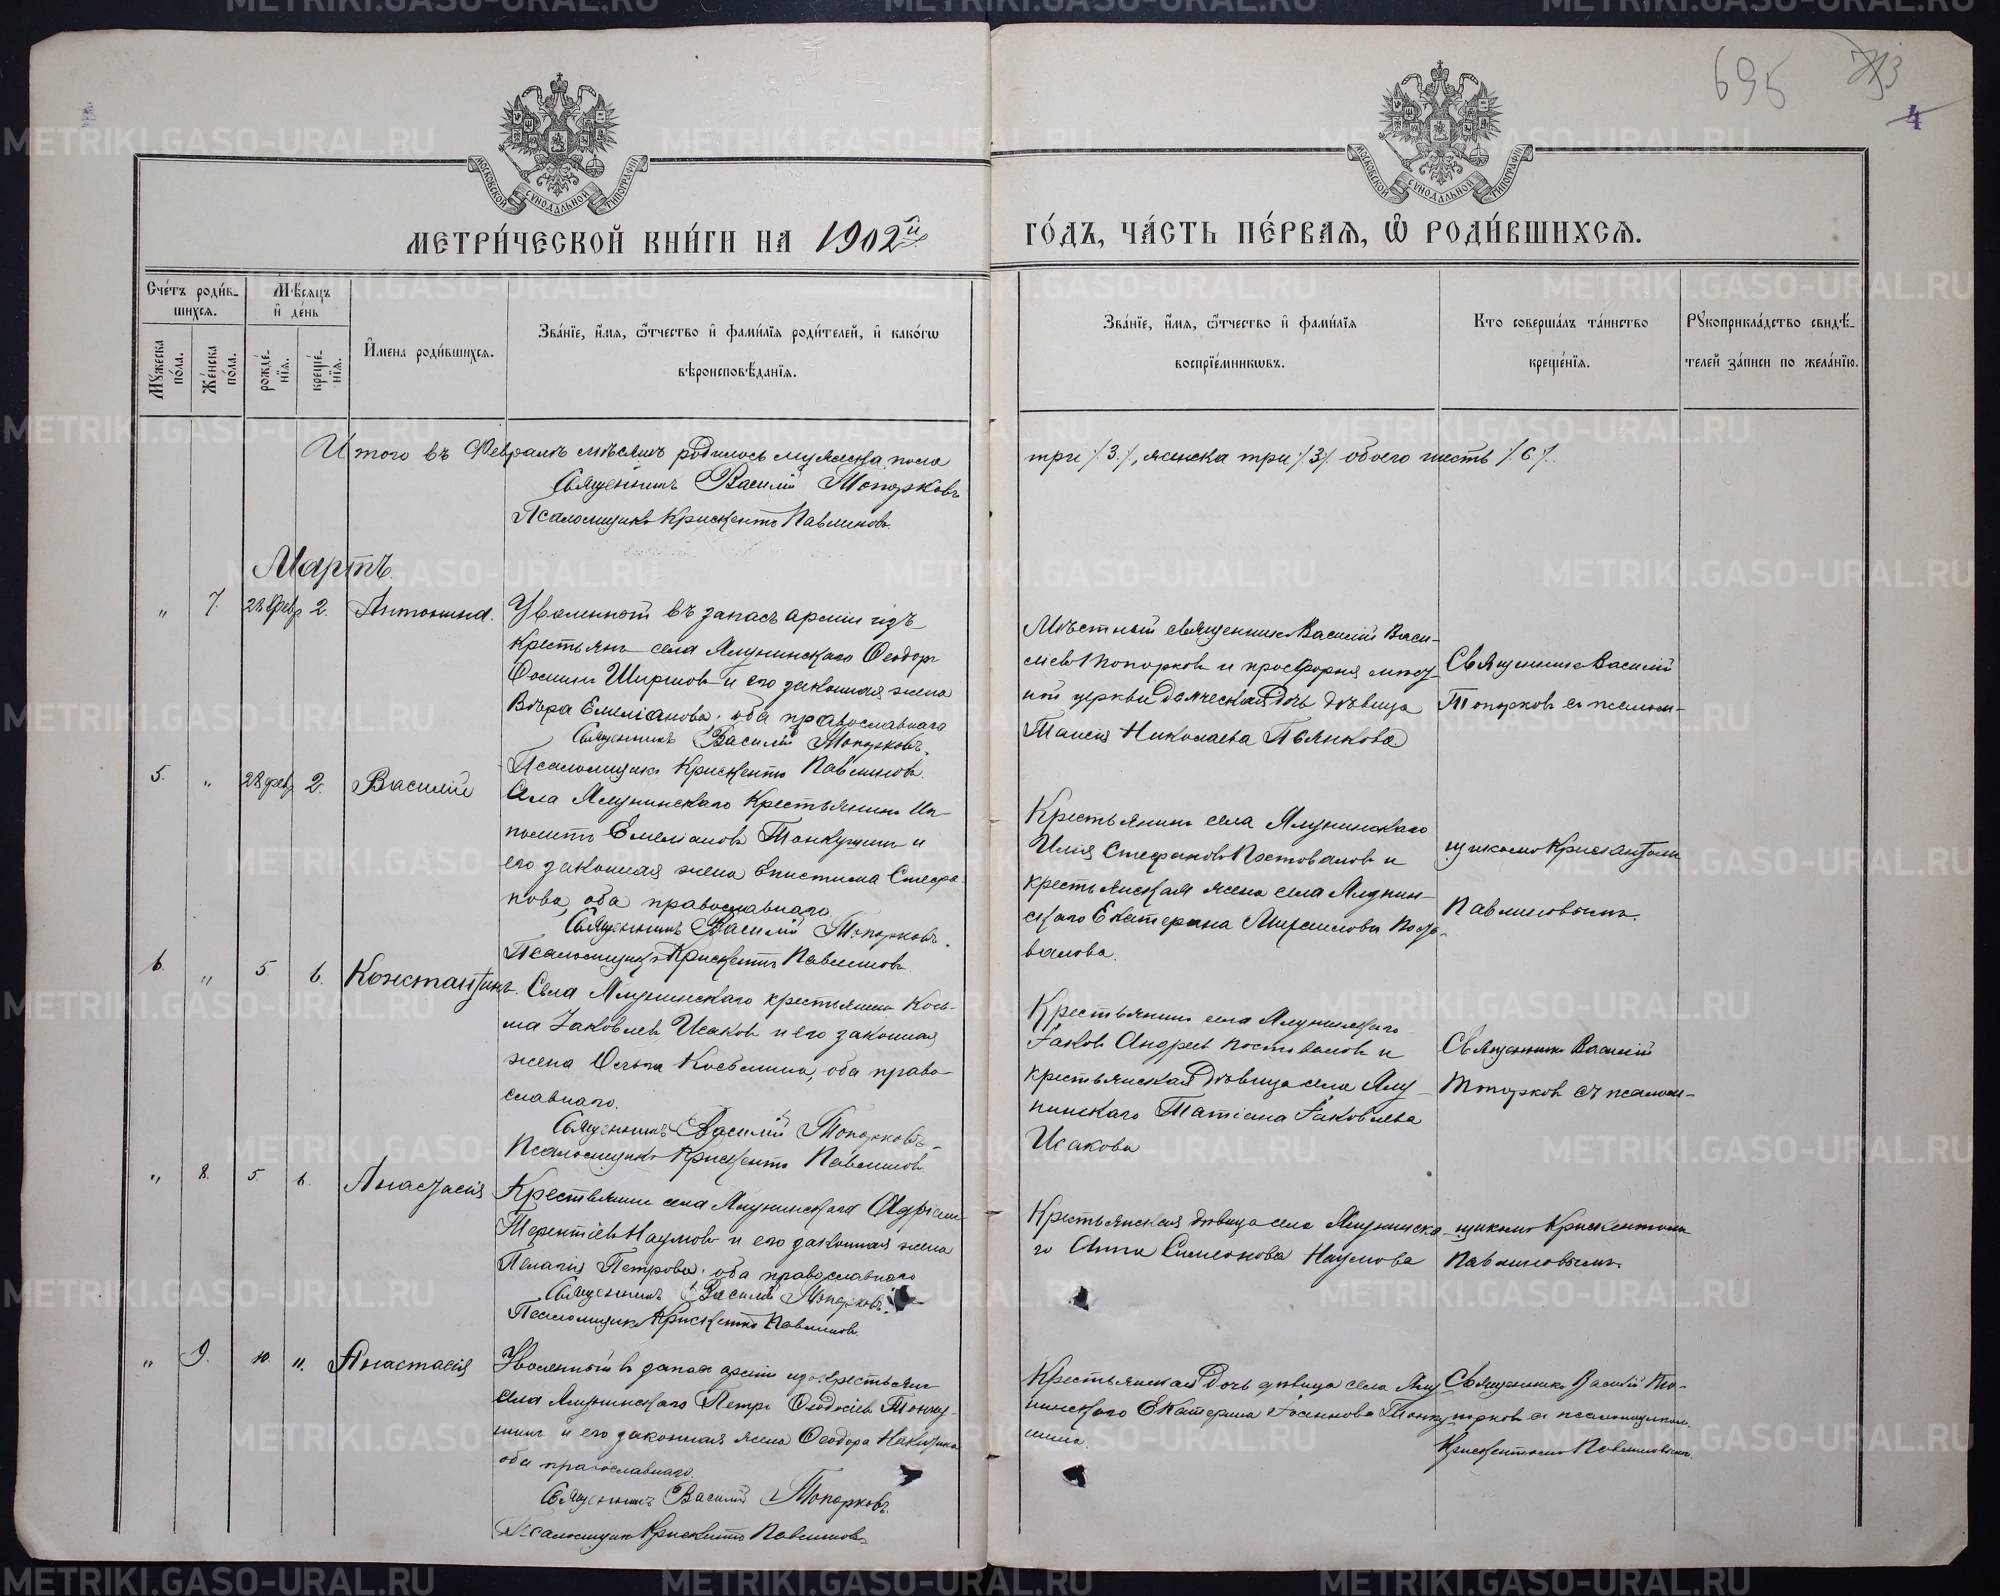 695
4
МОСКОВСКОЙ СѴНОДАЛЬНОЙ ТИПОГРАФІИ
МОСКОВСКОЙ СѴНОДАЛЬНОЙ ТИПОГРАФІИ
МЕТРИ́ЧЕСКОЙ КНИ́ГИ НА 1902й
ГО́ДЪ, ЧА́СТЬ ПЕ́РВАЯ, Ѡ РОДИ́ВШИХСѦ.
Сче́тъ роди́в-
шихсѧ.
Мꙋ́жеска по́ла.
Же́нска по́ла.
Мѣ́сѧцъ
и҆ де́нь
рожде́-
нїѧ.
креще́-
нїѧ.
И҆мена роди́вшихсѧ.
Зва́нїе, и҆́мѧ, ѻ҆́тчество и҆ фами́лїѧ роди́телей, и҆ како́гѡ
вѣроисповѣ́данїѧ.
Зва́нїе, и҆́мѧ, ѻ҆́тчество и҆ фами́лїѧ
воспрїе́мникѡвъ.
Кто соверша́лъ та́инство
креще́нїѧ.
Рꙋкоприкла́дство свидѣ́-
телей за́писи по жела́нїю.
Итого въ Февралѣ мѣсяцѣ родилось мужеска пола
три /3/, женска три /3/ обоего шесть /6/.
Священникъ Василій Топорковъ
Псаломщикъ Крискентъ Павлиновъ.
Мартъ.
" 7. 28 февр 2. Антонина.
Уволенный въ запасъ арміи изъ
крестьянъ села Ялунинскаго Ѳеодоръ
Ширшовъ и его законная жена
Вѣра Емеліанова, оба православнаго
Священникъ Василій Топорковъ.
Псаломщикъ Крискентъ Павлиновъ.
Мѣстный священникъ Василій Васи-
ліевъ Топорковъ и просфорня
церкви дочь дѣвица
Таисія Николаева Пьянкова
Священникъ Василій
Топорковъ съ псалом-
5. " 28 февр 2. Василій
Села Ялунинскаго крестьянинъ Ип-
политъ Емеліановъ Тонкушинъ и
его законная жена Епистима Стефа-
нова, оба православнаго
Священникъ Василій Топорковъ.
Псаломщикъ Крискентъ Павлиновъ.
Крестьянинъ села Ялунинскаго
Илія Стефановъ Постоваловъ и
крестьянская жена села Ялунин-
скаго Екатерина Михаилова Посто-
валова.
щикомъ Крискентомъ
Павлиновымъ.
6. " 5. 6. Константинъ.
Села Ялунинскаго крестьянинъ Козь-
ма Іаковлевъ Исаковъ и его законная
жена Ольга Косьмина, оба право-
славнаго.
Священникъ Василій Топорковъ
Псаломщикъ Крискентъ Павлиновъ
Крестьянинъ села Ялунинскаго
Іаковъ Андреевъ Постоваловъ и
крестьянская дѣвица села Ялу-
нинскаго Татіана Іаковлева
Исакова
Священникъ Василій
Топорковъ съ псалом-
" 8. 5. 6. Анастасія
Крестьянинъ села Ялунинскаго Адріанъ
Терентіевъ Наумовъ и его законная жена
Пелагія Петрова, оба православнаго
Священникъ Василій Топорковъ.
Псаломщикъ Крискентъ Павлиновъ.
Крестьянская дѣвица села Ялунинска-
го Анна Симеонова Наумова
щикомъ Крискентомъ
Павлиновымъ.
" 9. 10. 11. Анастасія
Уволенный въ запасъ арміи изъ крестьянъ
села Ялунинскаго Петръ Ѳеодосіевъ Тонку-
шинъ и его законная жена Ѳеодора
оба православнаго.
Священникъ Василій Топорковъ.
Псаломщикъ Крискентъ Павлиновъ
Крестьянская дочь дѣвица села Ялу-
нинскаго Екатерина Тонку-
шина.
Священникъ Василій То-
порковъ съ псаломщикомъ
Крискентомъ Павлиновымъ.
METRIKI.GASO-URAL.RU